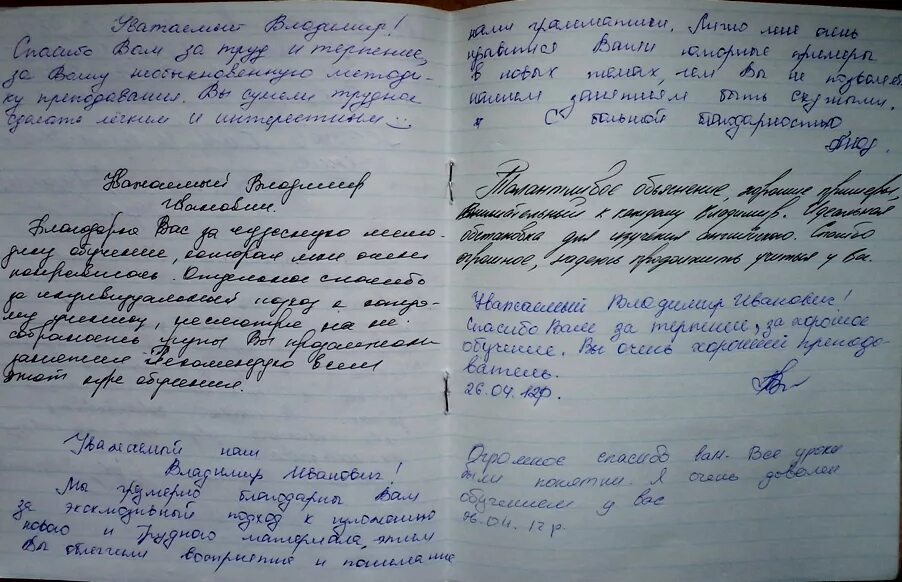 Уважаемый Владимир!
Спасибо Вам за труд и терпение,
за Вашу необыкновенную методи-
ку преподавания. Вы сумели трудное
сделать лёгким и интересным
Уважаемый Владимир
Иванович.
Благодарю Вас за чудесную мето-
дику обучения, которая мне очень
понравилась. Отдельное спасибо
за индивидуальный подход к каждо-
му ученику, несмотря на не
собранность группы Вы продолжали
занятие. Рекомендую всем
этот курс обучения.
Уважаемый наш
Владимир Иванович!
Мы благодарны Вам
за подход к изложению
нового и трудного материала, этим
Вы облегчили восприятие и понимание
нами грамматики. Лично мне очень
нравятся Ваши юморные примеры
в новых темах, чем Вы не позволяете
нашим занятиям быть скучными.
С большой благодарностью
Талантливое объяснение, хорошие примеры,
внимательный к каждому Владимир. Идеальная
обстановка для изучения английского. Спасибо
огромное, надеюсь продолжить учиться у Вас.
Уважаемый Владимир Иванович!
Спасибо Вам за терпение, за хорошое
обучение. Вы очень хороший преподо-
ватель.
26.04.12г.
Огромное спасибо вам. Все уроки
были понятны. Я очень доволен
обучением у вас
26.04.12 г.